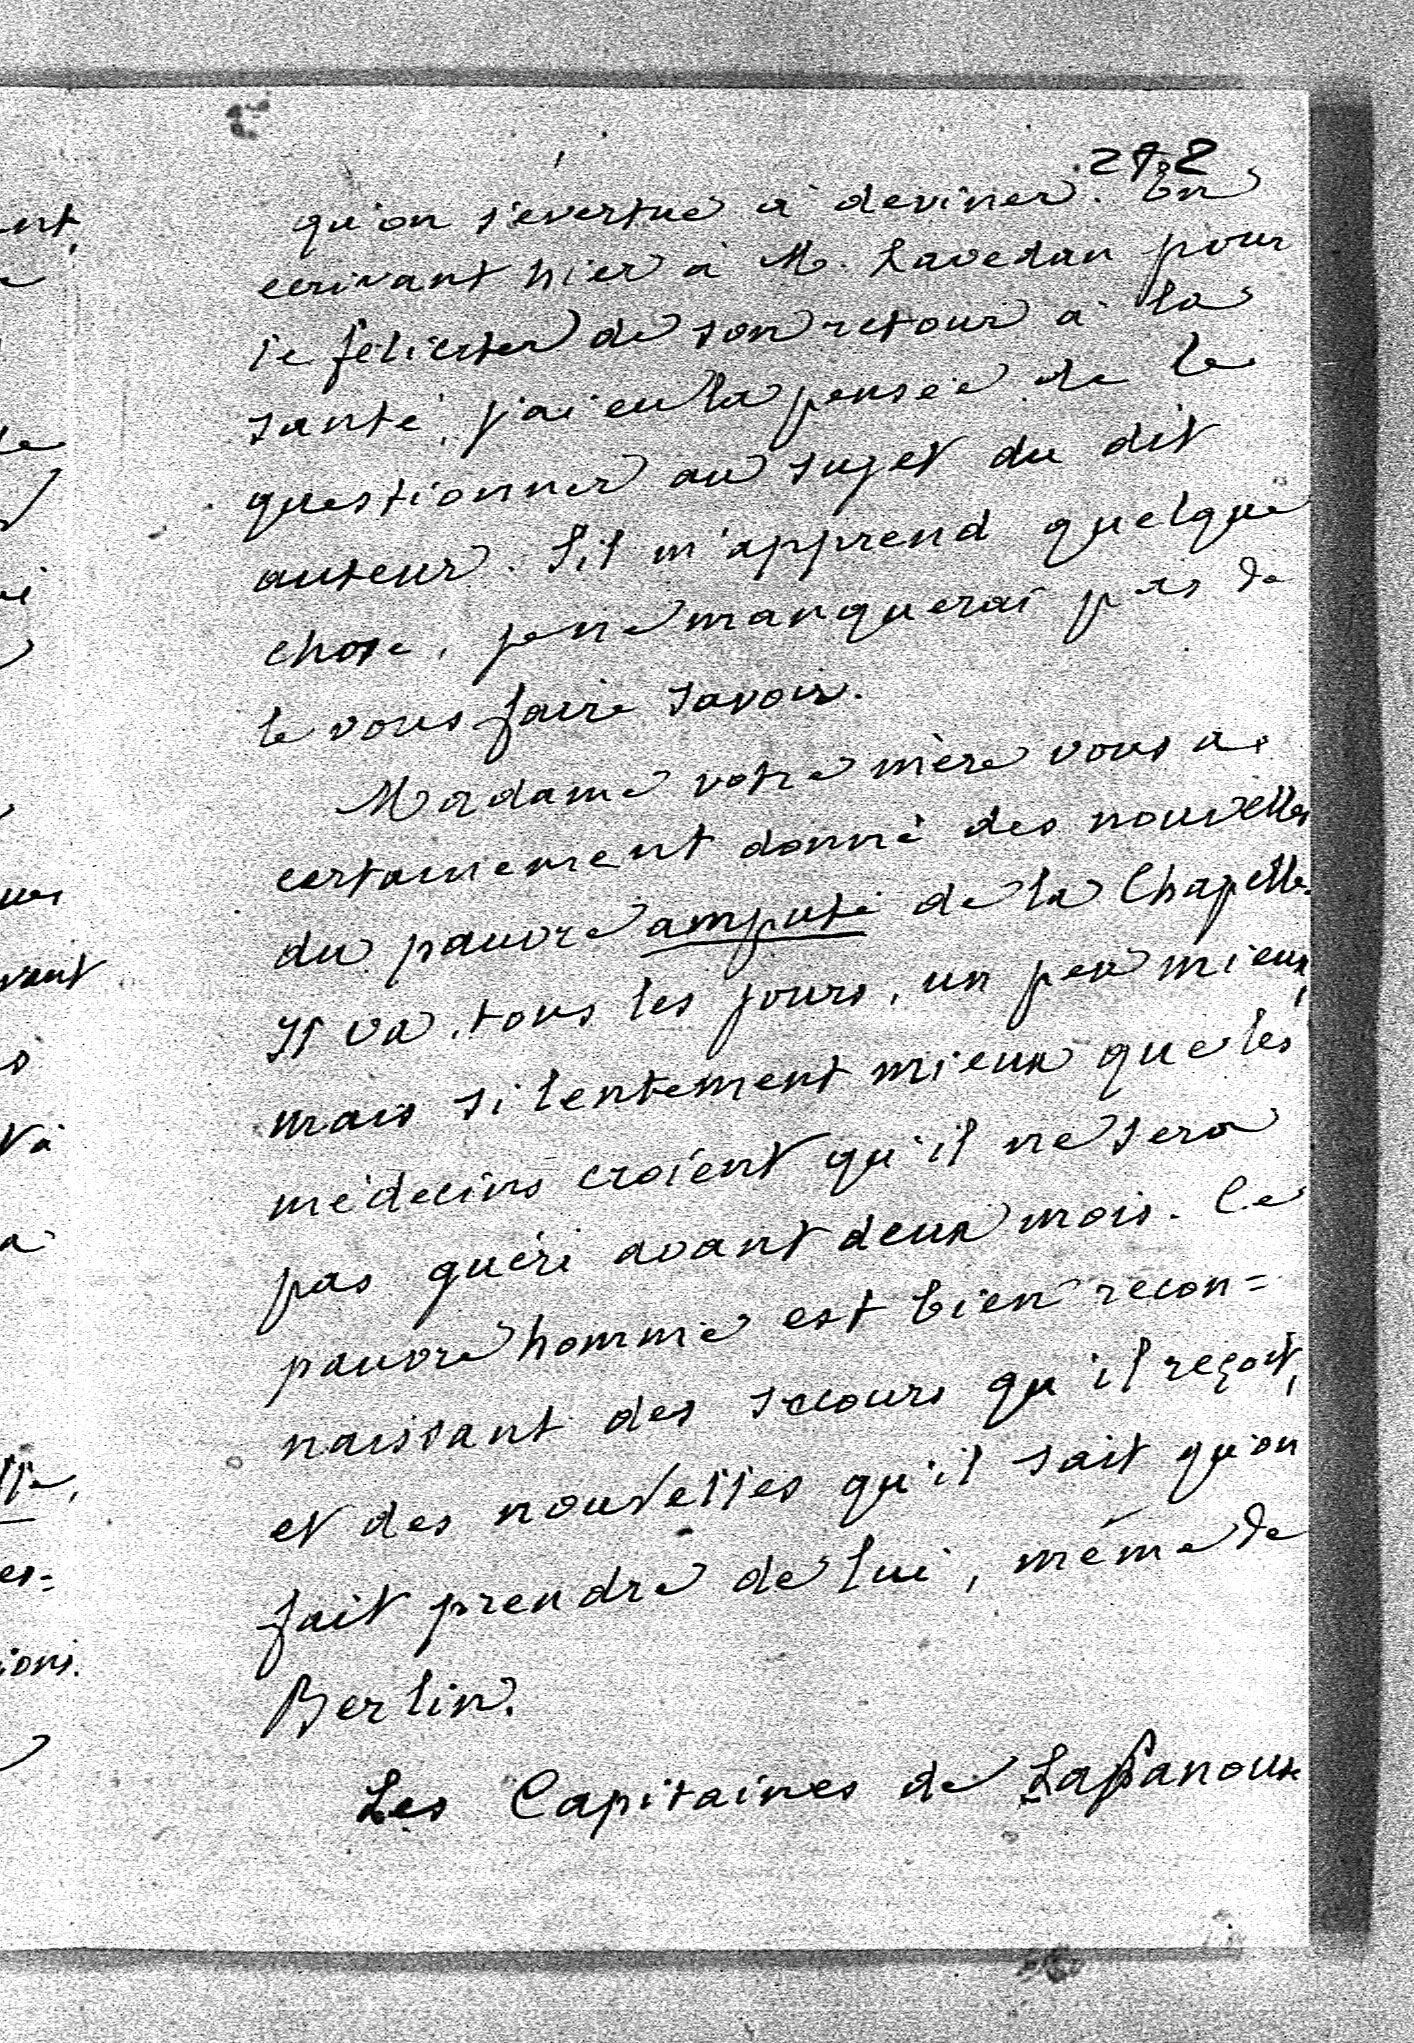 qu'on s'évertue à deviner. En
écrivant hier à M. Lavedan pour
le féliciter de son retour à la
santé, j'ai eu la pensée de le
questionner au sujet du dit
auteur. S'il m'apprend quelque
chose, je ne manquerai pas de
le vous faire savoir.
Madame votre mère vous a
certainement donné des nouvelles
du pauvre amputé de la Chapelle.
Il va, tous les jours, un peu mieux,
mais si lentement mieux que les
médecins croient qu'il ne sera
pas guéri avant deux mois. Ce
pauvre homme est bien recon=
naissant des secours qu'il reçoit,
et des nouvelles qu'il sait qu'on
fait prendre de lui, même de
Berlin.
Les Capitaines de Lapanouse